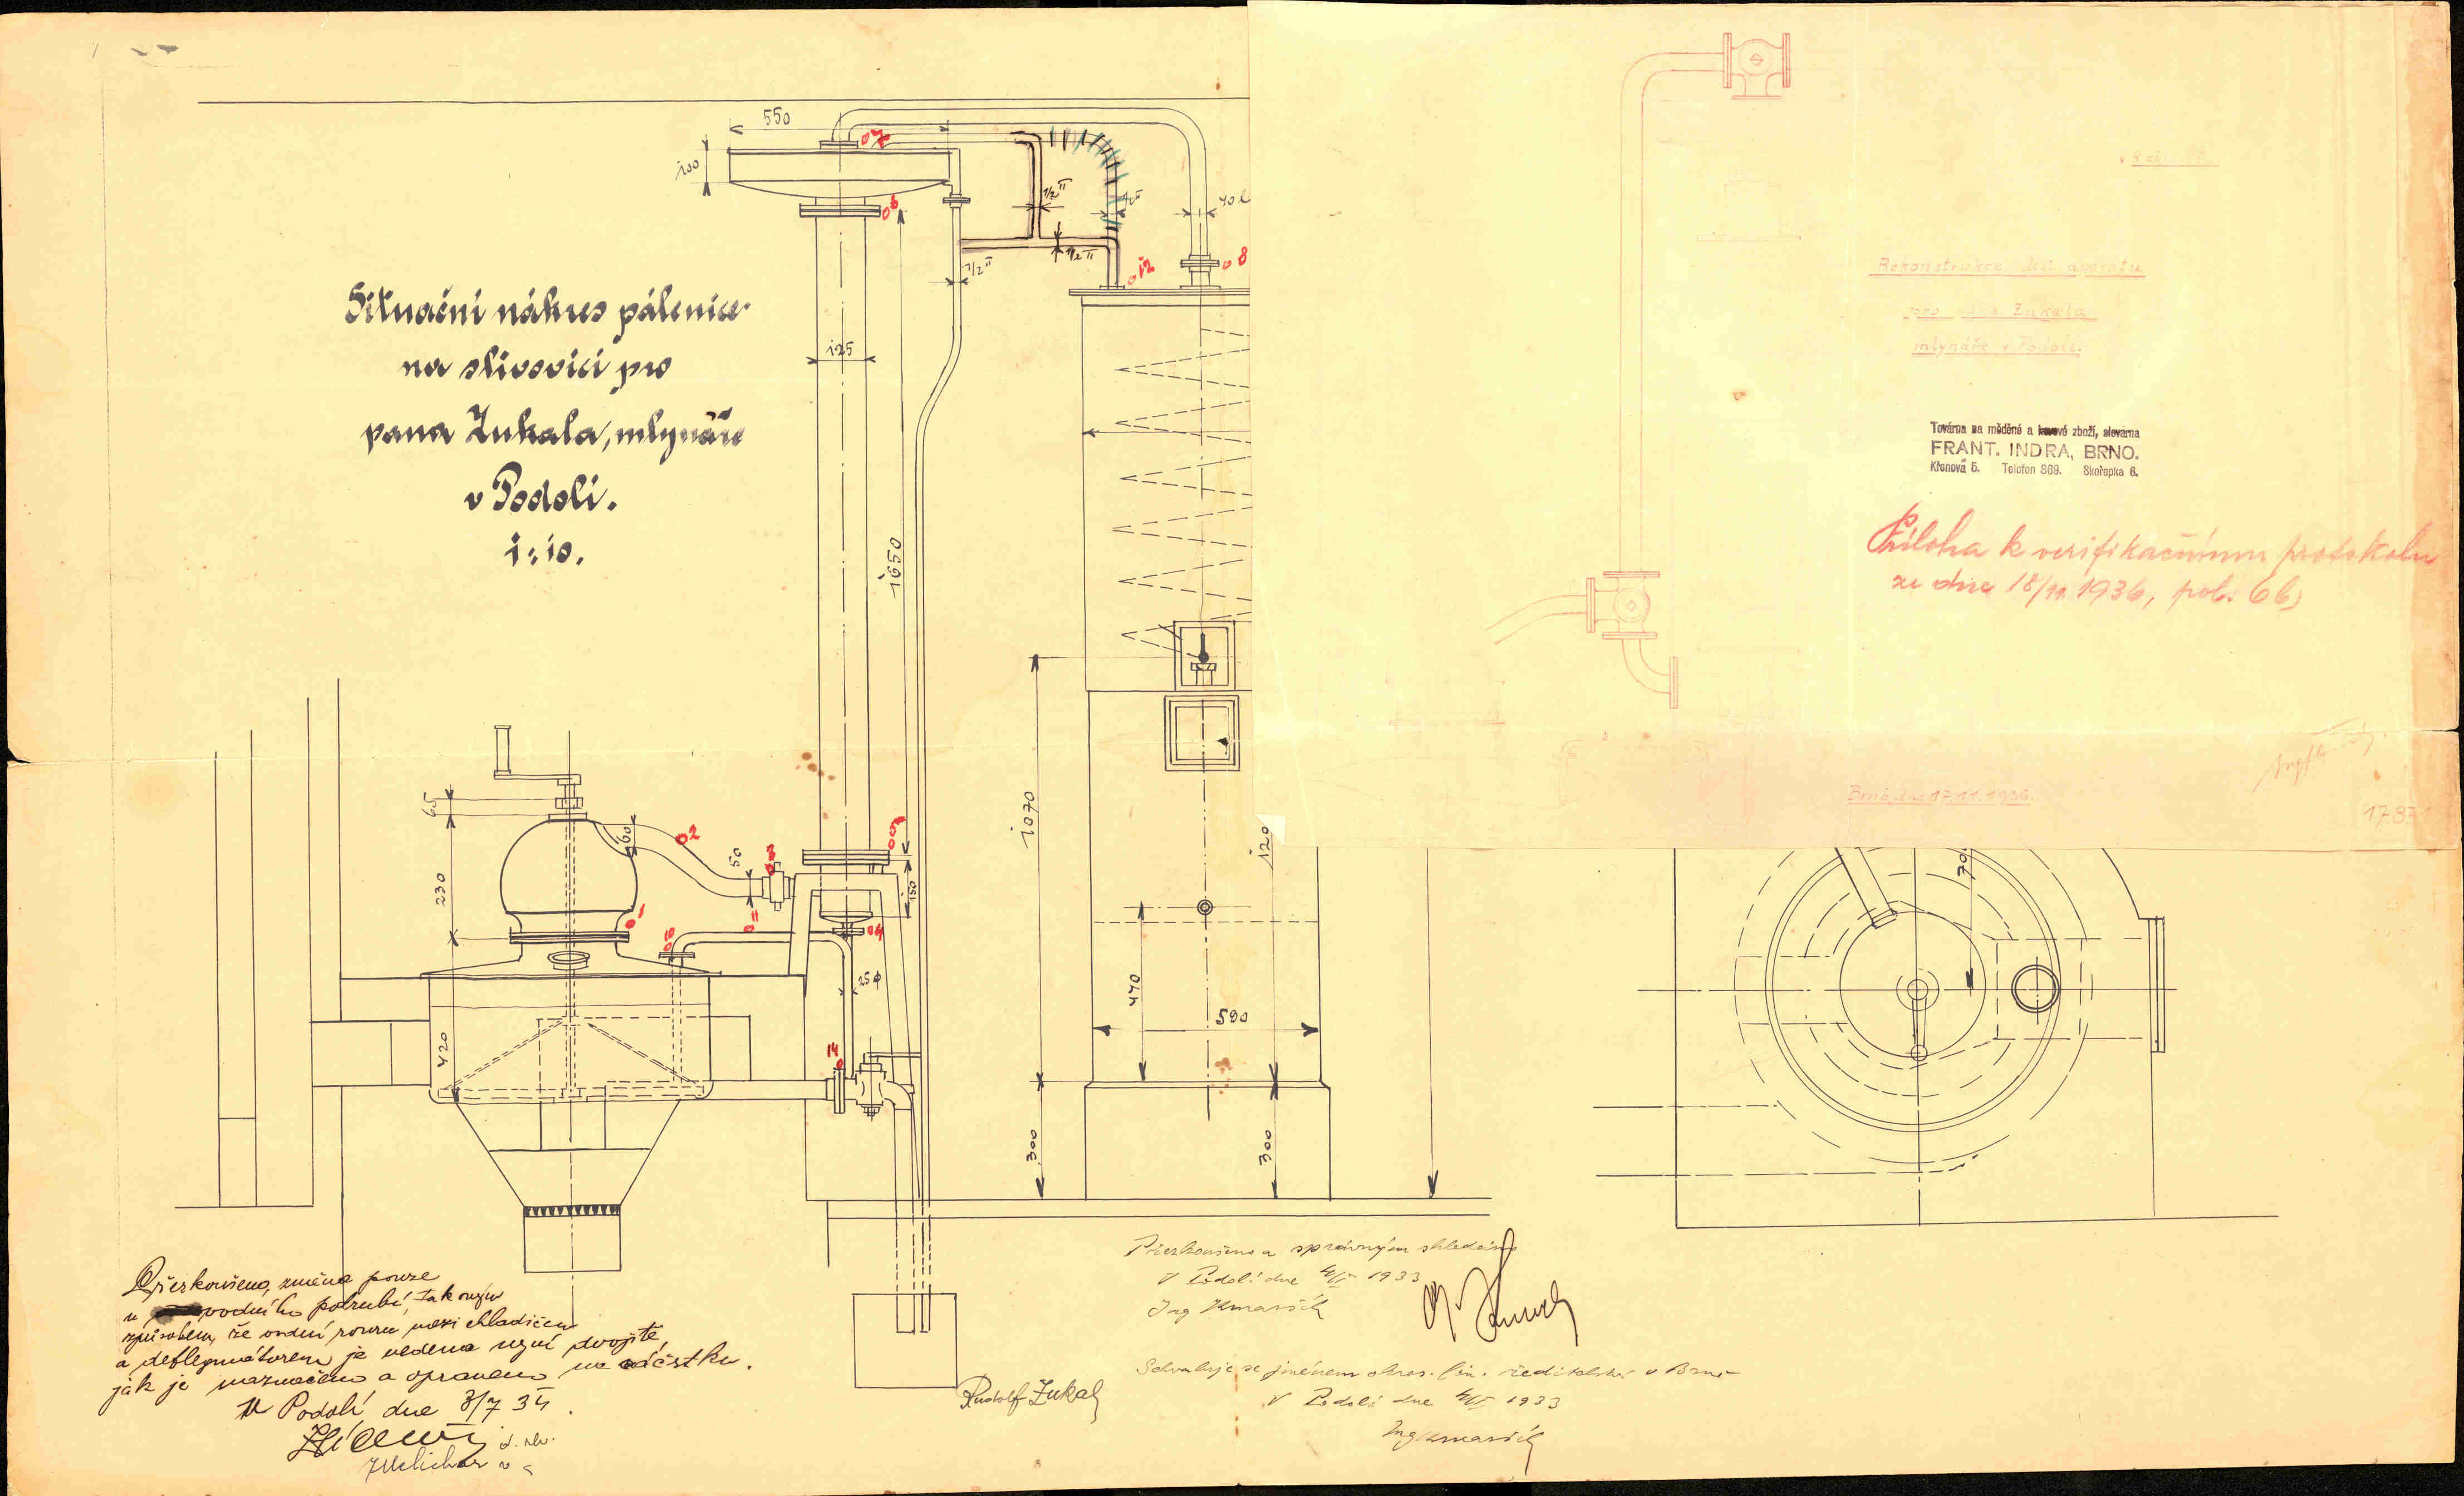 Situační nákres pálenice
na slivovici pro
pana Zukala, mlynáře
v Podolí.
1:10.
550
100
7
6
1/2"
1/2"
1/2"
40
12
8
125
1650
65
230
60
2
50
3
5
150
1
11
10
4
25 ϕ
420
14
1070
470
590
120
300
300
70
Rekonstrukce dest. aparátu
pro pana Zukala
mlynáře v Podolí.
Továrna na měděné a kovové zboží, slevárna
FRANT. INDRA, BRNO.
Křenová 5. Telefon 869. Skořepka 6.
Příloha k verifikačnímu protokolu
ze dne 18/11 1936, pol. 6b)
Brno, dne 17.11.1936.
1783
Přezkoušeno, změna pouze
u vodního potrubí, tak
způsobem, že vodní roura mezi chladičem
a deflegmátorem je vedena nyní dvojitě,
jak je naznačeno a opraveno na náčrtku.
V Podolí dne 3/7 35.
Melichar
Rudolf Zukal
Přezkoušeno a správným shledáno
V Podolí dne 1933
Ing
Schvaluje se jménem okres. fin. ředitelství v Brně
V Podolí dne 1933
Ing